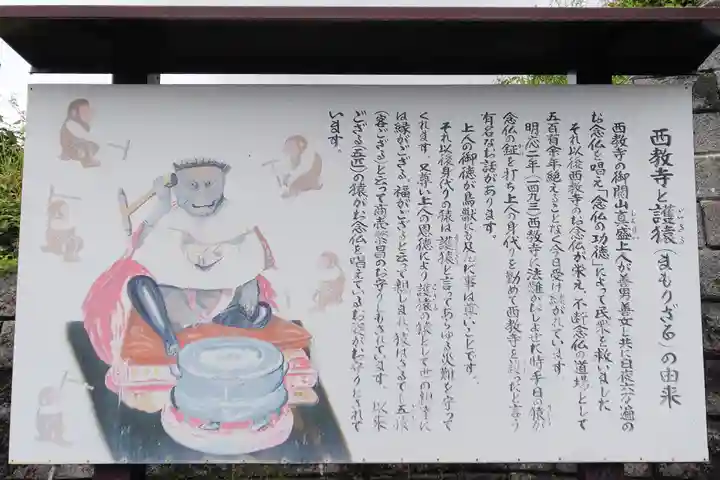 西教寺と護猿(まもりざる)の由来
西教寺の御開山真盛上人が善男善女と共に日夜六万遍の
お念仏を唱え「念仏の功徳」によって民衆を救いました
それ以後西教寺のお念仏が栄え、不断念仏の道場として
五百有余年絶えることなく今日受けつがれています
明応二年(一四九三)西教寺に法難がおしよせた時手白の猿が
念仏の鉦を打ち上人の身代りを勤めて西教寺を護ったと言う
有名なお話があります。
上人の御徳が鳥獣にも及んだ事は尊いことです。
それ以後身代りの猿は護猿と言ってあらゆる災難を守って
くれます 又尊い上人の恩徳により護猿の猿として世の
は縁がござる。福がござると云って親しまれ、猿は
(客ござる)と云って商売繁昌のお守りともされています 以来
ござる(五匹)の猿がお念仏を唱えているお姿がお守りとされて
います。